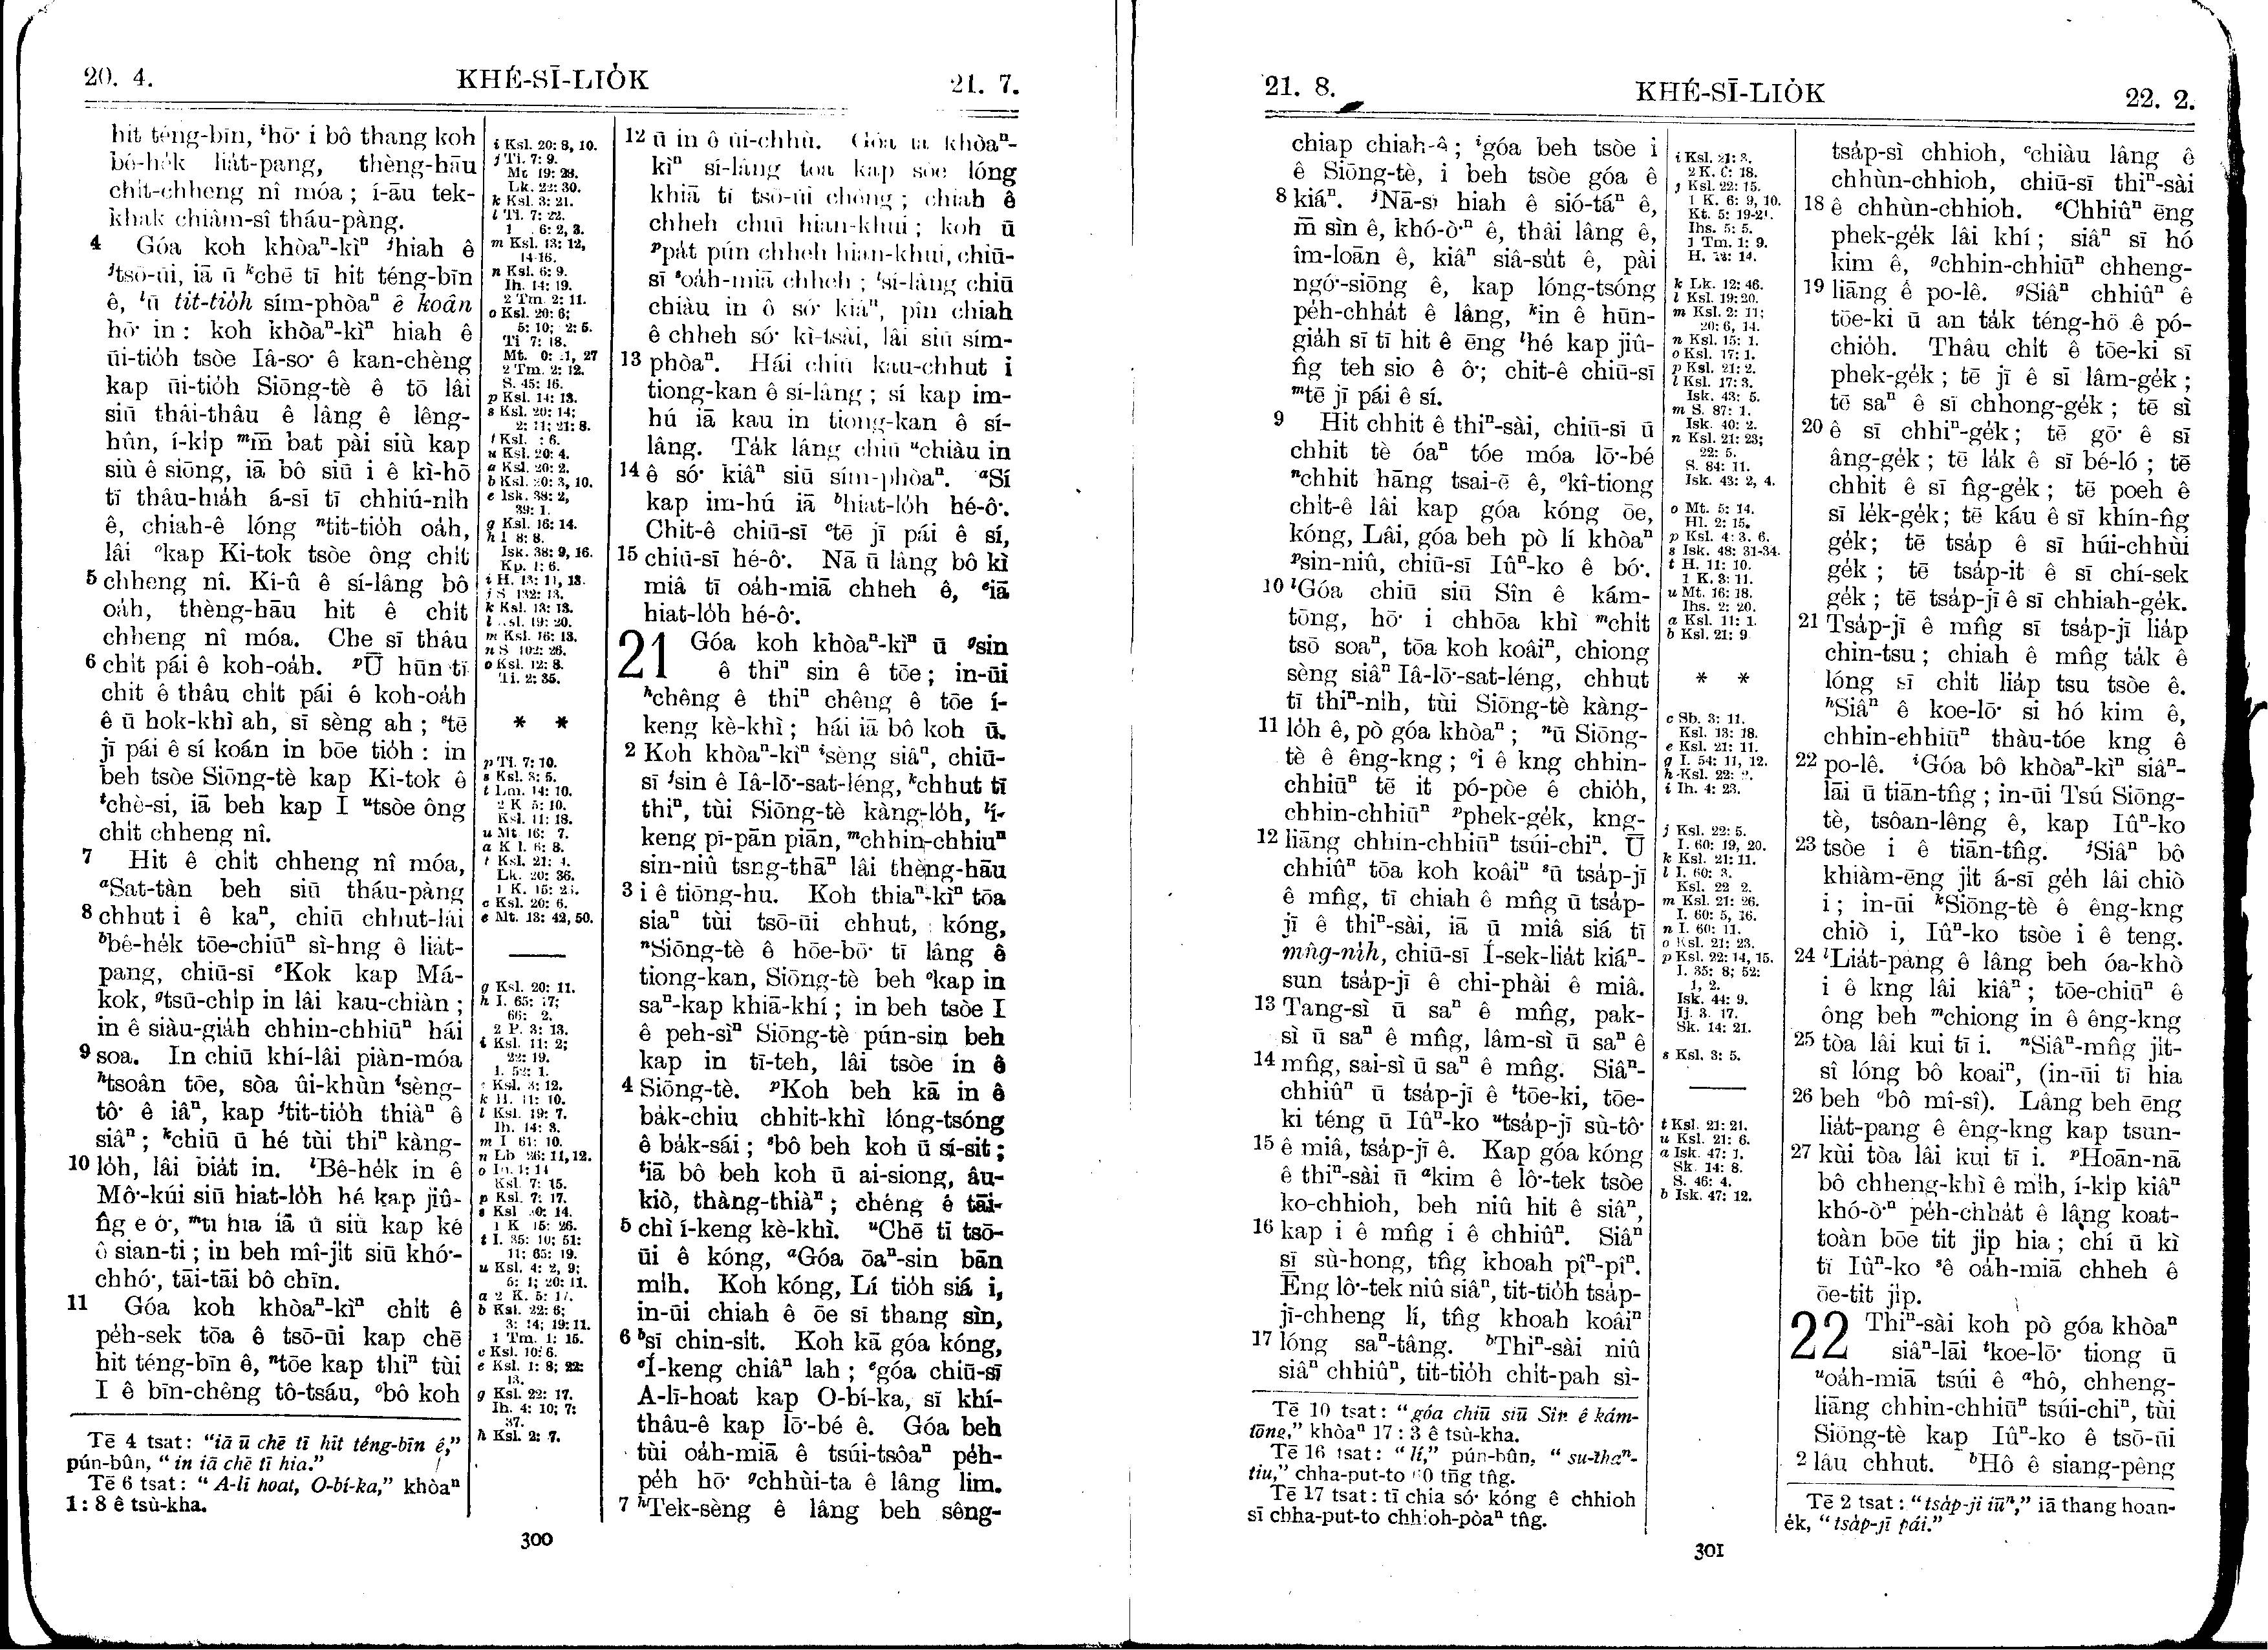 20. 4.
KHÉ-SĪ-LIO̍K
21. 7.
hit téng-bīn, ⁱhō͘ i bô thang koh
bê-he̍k lia̍t-pang, thèng-hāu
chi̍t-chheng nî móa ; í-āu tek-
khak chiām-sî tháu-pàng.
4 Góa koh khòaⁿ-kìⁿ ʲhiah ê
ʲtsō-ūi, iā ū ᵏchē tī hit téng-bīn
ê, ˡū tit-tio̍h sím-phòaⁿ ê koân
hō͘ in : koh khòaⁿ-kìⁿ hiah ê
ūi-tio̍h tsòe Iâ-so͘ ê kan-chèng
kap ūi-tio̍h Siōng-tè ê tō lâi
siū thâi-thâu ê lâng ê lêng-
hûn, í-ki̍p ᵐm̄ bat pài siù kap
siù ê siōng, iā bô siū i ê kì-hō
tī thâu-hia̍h á-sī tī chhiú-ni̍h
ê, chiah-ê lóng ⁿtit-tio̍h oa̍h,
lâi ᵒkap Ki-tok tsòe ông chi̍t
5 chheng nî. Kî-û ê sí-lâng bô
oa̍h, thèng-hāu hit ê chi̍t
chheng nî móa. Che sī thâu
6 chi̍t pái ê koh-oa̍h. ᵖŪ hūn tī
chit ê thâu chi̍t pái ê koh-oa̍h
ê ū hok-khì ah, sī sèng ah ; ˢtē
jī pái ê sí koán in bōe tio̍h : in
beh tsòe Siōng-tè kap Ki-tok ê
ᵗchè-si, iā beh kap I ᵘtsòe ông
chi̍t chheng nî.
7 Hit ê chi̍t chheng nî móa,
ᵃSat-tàn beh siū tháu-pàng
8 chhut i ê kaⁿ, chiū chhut-lâi
ᵇbê-he̍k tōe-chiūⁿ sì-hng ê lia̍t-
pang, chiū-sī ᵉKok kap Má-
kok, ᵍtsū-chi̍p in lâi kau-chiàn ;
in ê siàu-gia̍h chhin-chhiūⁿ hái
9 soa. In chiū khí-lâi piàn-móa
ʰtsoân tōe, sòa ûi-khùn ⁱsèng-
tô͘ ê iâⁿ, kap ʲtit-tio̍h thiàⁿ ê
siâⁿ ; ᵏchiū ū hé tùi thiⁿ kàng-
10 lo̍h, lâi bia̍t in. ˡBê-he̍k in ê
Mô͘-kúi siū hiat-lo̍h hé kap jiû-
n̂g ê ô͘, ᵐtī hia iā ū siù kap ké
ê sian-ti ; in beh mî-ji̍t siū khó͘-
chhó͘, tāi-tāi bô chīn.
11 Góa koh khòaⁿ-kìⁿ chi̍t ê
pe̍h-sek tōa ê tsō-ūi kap chē
hit téng-bīn ê, ⁿtōe kap thiⁿ tùi
I ê bīn-chêng tô-tsáu, ᵒbô koh
Tē 4 tsat : “iā ū chē tī hit téng-bīn ê,”
pún-bûn, “in iā chē tī hia.”
Tē 6 tsat : “A-lī hoat, O-bí-ka,” khòaⁿ
1 : 8 ê tsù-kha.
i Ksl. 20: 8, 10.
j Ti. 7: 9.
Mt. 19: 28.
Lk. 22: 30.
k Ksl. 3: 21.
l Ti. 7: 22.
6: 2, 3.
m Ksl. 13: 12,
14-16.
n Ksl. 6: 9.
Ih. 14: 19.
2 Tm. 2: 11.
o Ksl. 20: 6;
5: 10;
Ti 7: 18.
2 Tm. 2: 12.
S. 45: 16.
p Ksl. 14: 13.
s Ksl. 20: 14;
2: 11; 21: 8.
u Ksl. 20: 4.
a Ksl. 20: 2.
b Ksl. 20: 3, 10.
e Isk. 38: 2,
39: 1.
g Ksl. 16: 14.
Isk. 38: 9, 16.
i H. 13: 11, 13.
j S 132: 13.
k Ksl. 13: 13.
m Ksl. 16: 13.
n S 102: 26.
o Ksl. 12: 8.
Ti. 2: 35.
* *
p Ti. 7: 10.
s Ksl. 3: 5.
t Lm. 14: 10.
2 K 5: 10.
Ksl. 11: 18.
t Ksl. 21: 4.
Lk. 20: 36.
c Ksl. 20: 6.
e Mt. 13: 42, 50.
g Ksl. 20: 11.
h I. 65: 17;
66: 2.
2 P. 3: 13.
i Ksl. 11: 2;
22: 19.
I. 52: 1.
k H. 11: 10.
l Ksl. 19: 7.
Ih. 14: 3.
m I 61: 10.
n Lb 26: 11, 12.
Ksl. 7: 15.
p Ksl. 7: 17.
1 K 15: 26.
t I. 35: 10; 51:
11; 65: 19.
u Ksl. 4: 2, 9;
5: 1; 20: 11.
a 2 K. 5: 17.
b Ksl. 22: 6;
3: 14; 19: 11.
1 Tm. 1: 15.
c Ksl. 10: 6.
e Ksl. 1: 8; 22:
13.
g Ksl. 22: 17.
Ih. 4: 10; 7:
37.
h Ksl. 2: 7.
12 ū in ê ūi-chhù. Góa iā khòaⁿ-
kìⁿ sí-lâng tōa kap sòe lóng
khiā tī tsō-ūi chêng ; chiah ê
chheh chiū hian-khui ; koh ū
ᵖpa̍t pún chheh hian-khui, chiū-
sī ˢoa̍h-miā chheh ; ᵗsí-lâng chiū
chiàu in ê só͘ kiâⁿ, pîn chiah
ê chheh só͘ kì-tsài, lâi siū sím-
13 phòaⁿ. Hái chiū kau-chhut i
tiong-kan ê sí-lâng ; sí kap im-
hú iā kau in tiong-kan ê sí-
lâng. Ta̍k lâng chiū ᵘchiàu in
14 ê só͘ kiâⁿ siū sím-phòaⁿ. ᵃSí
kap im-hú iā ᵇhiat-lo̍h hé-ô͘.
Chit-ê chiū-sī ᶜtē jī pái ê sí,
15 chiū-sī hé-ô͘. Nā ū lâng bô kì
miâ tī oa̍h-miā chheh ê, ᵉiā
hiat-lo̍h hé-ô͘.
21 Góa koh khòaⁿ-kìⁿ ū ᵍsin
ê thiⁿ sin ê tōe ; in-ūi
ʰchêng ê thiⁿ chêng ê tōe í-
keng kè-khì ; hái iā bô koh ū.
2 Koh khòaⁿ-kìⁿ ⁱsèng siâⁿ, chiū-
sī ʲsin ê Iâ-lō͘-sat-léng, ᵏchhut tī
thiⁿ, tùi Siōng-tè kàng-lo̍h, ˡí-
keng pī-pān piān, ᵐchhin-chhiūⁿ
sin-niû tsng-thāⁿ lâi thèng-hāu
3 i ê tiōng-hu. Koh thiaⁿ-kìⁿ tōa
siaⁿ tùi tsō-ūi chhut, kóng,
ⁿSiōng-tè ê hōe-bō͘ tī lâng ê
tiong-kan, Siōng-tè beh ᵒkap in
saⁿ-kap khiā-khí ; in beh tsòe I
ê peh-sìⁿ Siōng-tè pún-sin beh
kap in tī-teh, lâi tsòe in ê
4 Siōng-tè. ᵖKoh beh kā in ê
ba̍k-chiu chhit-khì lóng-tsóng
ê ba̍k-sái ; ˢbô beh koh ū sí-sit ;
ᵗiā bô beh koh ū ai-siong, âu-
kiò, thàng-thiàⁿ ; chêng ê tāi-
5 chì í-keng kè-khì. ᵘChē tī tsō-
ūi ê kóng, ᵃGóa ōaⁿ-sin bān
mi̍h. Koh kóng, Lí tio̍h siá i,
in-ūi chiah ê ōe sī thang sìn,
6 ᵇsī chin-si̍t. Koh kā góa kóng,
ᶜÍ-keng chiâⁿ lah ; ᵉgóa chiū-sī
A-lī-hoat kap O-bí-ka, sī khí-
thâu-ê kap lō͘-bé ê. Góa beh
tùi oa̍h-miā ê tsúi-tsôaⁿ pe̍h-
pe̍h hō͘ ᵍchhùi-ta ê lâng lim.
7 ʰTek-sèng ê lâng beh sêng-
300
21. 8.
KHÉ-SĪ-LIO̍K
22. 2.
chiap chiah-ê ; ⁱgóa beh tsòe i
ê Siōng-tè, i beh tsòe góa ê
8 kiáⁿ. ʲNā-sī hiah ê sió-táⁿ ê,
m̄ sìn ê, khó-ò͘ⁿ ê, thâi lâng ê,
îm-loān ê, kiâⁿ siâ-su̍t ê, pài
ngó͘-siōng ê, kap lóng-tsóng
pe̍h-chha̍t ê lâng, ᵏin ê hūn-
gia̍h sī tī hit ê ēng ˡhé kap jiû-
n̂g teh sio ê ô͘ ; chit-ê chiū-sī
ᵐtē jī pái ê sí.
9 Hit chhit ê thiⁿ-sài, chiū-sī ū
chhit tè óaⁿ tóe móa lō͘-bé
ⁿchhit hāng tsai-ē ê, ᵒkî-tiong
chi̍t-ê lâi kap góa kóng ōe,
kóng, Lâi, góa beh pò lí khòaⁿ
ᵖsin-niû, chiū-sī Iûⁿ-ko ê bó͘.
10 ˡGóa chiū siū Sîn ê kám-
tōng, hō͘ i chhōa khì ᵐchi̍t
tsō soaⁿ, tōa koh koâiⁿ, chiong
sèng siâⁿ Iâ-lō͘-sat-léng, chhut
tī thiⁿ-ni̍h, tùi Siōng-tè kàng-
11 lo̍h ê, pò góa khòaⁿ ; ⁿū Siōng-
tè ê êng-kng ; ᵒi ê kng chhin-
chhiūⁿ tē it pó-pòe ê chio̍h,
chhin-chhiūⁿ ᵖphek-ge̍k, kng-
12 liāng chhin-chhiūⁿ tsúi-chiⁿ. Ū
chhiûⁿ tōa koh koâiⁿ ˢū tsa̍p-jī
ê mn̂g, tī chiah ê mn̂g ū tsa̍p-
jī ê thiⁿ-sài, iā ū miâ siá tī
mn̂g-ni̍h, chiū-sī Í-sek-lia̍t kiáⁿ-
sun tsa̍p-jī ê chi-phài ê miâ.
13 Tang-sì ū saⁿ ê mn̂g, pak-
sì ū saⁿ ê mn̂g, lâm-sì ū saⁿ ê
14 mn̂g, sai-sì ū saⁿ ê mn̂g. Siâⁿ-
chhiûⁿ ū tsa̍p-jī ê ᵗtōe-ki, tōe-
ki téng ū Iûⁿ-ko ᵘtsa̍p-jī sù-tô͘
15 ê miâ, tsa̍p-jī ê. Kap góa kóng
ê thiⁿ-sài ū ᵃkim ê lô͘-tek tsòe
ko-chhioh, beh niû hit ê siâⁿ,
16 kap i ê mn̂g i ê chhiûⁿ. Siâⁿ
sī sù-hong, tn̂g khoah pîⁿ-pîⁿ.
Ēng lô͘-tek niû siâⁿ, tit-tio̍h tsa̍p-
jī-chheng lí, tn̂g khoah koâiⁿ
17 lóng saⁿ-tâng. ᵇThiⁿ-sài niû
siâⁿ chhiûⁿ, tit-tio̍h chi̍t-pah sì-
Tē 10 tsat : “góa chiū siū Sîn ê kám-
tōng,” khòaⁿ 17 : 3 ê tsù-kha.
Tē 16 tsat : “lí,” pún-bûn, “su-thaⁿ-
tiu,” chha-put-to 60 tn̄g tn̂g.
Tē 17 tsat : tī chia só͘ kóng ê chhioh
sī chha-put-to chhioh-pòaⁿ tn̂g.
i Ksl. 21: 3.
2 K. 6: 18.
j Ksl. 22: 15.
1 K. 6: 9, 10.
Kt. 5: 19-21.
Ihs. 5: 5.
1 Tm. 1: 9.
H. 13: 14.
k Lk. 12: 46.
l Ksl. 19: 20.
m Ksl. 2: 11;
20: 6, 14.
n Ksl. 15: 1.
o Ksl. 17: 1.
p Ksl. 21: 2.
l Ksl. 17: 3.
Isk. 43: 5.
m S. 87: 1.
Isk. 40: 2.
n Ksl. 21: 23;
22: 5.
S. 84: 11.
Isk. 43: 2, 4.
o Mt. 5: 14.
Hl. 2: 15.
p Ksl. 4: 3, 6.
s Isk. 48: 31-34.
t H. 11: 10.
1 K. 3: 11.
u Mt. 16: 18.
Ihs. 2: 20.
a Ksl. 11: 1.
b Ksl. 21: 9
* *
c Sb. 3: 11.
Ksl. 13: 18.
e Ksl. 21: 11.
g I. 54: 11, 12.
h Ksl. 22: 2.
i Ih. 4: 23.
j Ksl. 22: 5.
I. 60: 19, 20.
k Ksl. 21: 11.
l I. 60: 3.
Ksl. 22 2.
m Ksl. 21: 26.
I. 60: 5, 16.
n I. 60: 11.
o Ksl. 21: 23.
p Ksl. 22: 14, 15.
I. 35: 8; 52:
1, 2.
Isk. 44: 9.
Ij. 3. 17.
Sk. 14: 21.
s Ksl. 3: 5.
t Ksl. 21: 21.
u Ksl. 21: 6.
a Isk. 47: 1.
Sk. 14: 8.
S. 46: 4.
b Isk. 47: 12.
tsa̍p-sì chhioh, ᶜchiàu lâng ê
chhùn-chhioh, chiū-sī thiⁿ-sài
18 ê chhùn-chhioh. ᵉChhiûⁿ ēng
phek-ge̍k lâi khí ; siâⁿ sī hó
kim ê, ᵍchhin-chhiūⁿ chheng-
19 liāng ê po-lê. ᵍSiâⁿ chhiûⁿ ê
tōe-ki ū an ta̍k téng-hō ê pó-
chio̍h. Thâu chi̍t ê tōe-ki sī
phek-ge̍k ; tē jī ê sī lâm-ge̍k ;
tē saⁿ ê sī chhong-ge̍k ; tē sì
20 ê sī chhiⁿ-ge̍k ; tē gō͘ ê sī
âng-ge̍k ; tē la̍k ê sī bé-ló ; tē
chhit ê sī n̂g-ge̍k ; tē poeh ê
sī le̍k-ge̍k ; tē káu ê sī khín-n̂g
ge̍k ; tē tsa̍p ê sī húi-chhùi
ge̍k ; tē tsa̍p-it ê sī chí-sek
ge̍k ; tē tsa̍p-jī ê sī chhiah-ge̍k.
21 Tsa̍p-jī ê mn̂g sī tsa̍p-jī lia̍p
chin-tsu ; chiah ê mn̂g ta̍k ê
lóng sī chi̍t lia̍p tsu tsòe ê.
ʰSiâⁿ ê koe-lō͘ sī hó kim ê,
chhin-chhiūⁿ thàu-tóe kng ê
22 po-lê. ⁱGóa bô khòaⁿ-kìⁿ siâⁿ-
lāi ū tiān-tn̂g ; in-ūi Tsú Siōng-
tè, tsôan-lêng ê, kap Iûⁿ-ko
23 tsòe i ê tiān-tn̂g. ʲSiâⁿ bô
khiàm-ēng ji̍t á-sī ge̍h lâi chiò
i ; in-ūi ᵏSiōng-tè ê êng-kng
chiò i, Iûⁿ-ko tsòe i ê teng.
24 ˡLia̍t-pang ê lâng beh óa-khò
i ê kng lâi kiâⁿ ; tōe-chiūⁿ ê
ông beh ᵐchiong in ê êng-kng
25 tòa lâi kui tī i. ⁿSiâⁿ-mn̂g ji̍t-
sî lóng bô koaiⁿ, (in-ūi tī hia
26 beh ᵒbô mî-sî). Lâng beh ēng
lia̍t-pang ê êng-kng kap tsun-
27 kùi tòa lâi kui tī i. ᵖHoān-nā
bô chheng-khì ê mi̍h, í-ki̍p kiâⁿ
khó-ò͘ⁿ pe̍h-chha̍t ê lâng koat-
toàn bōe tit ji̍p hia ; chí ū kì
tī Iûⁿ-ko ˢê oa̍h-miā chheh ê
ōe-tit ji̍p.
22 Thiⁿ-sài koh pò góa khòaⁿ
siâⁿ-lāi ᵗkoe-lō͘ tiong ū
ᵘoa̍h-miā tsúi ê ᵃhô, chheng-
liāng chhin-chhiūⁿ tsúi-chiⁿ, tùi
Siōng-tè kap Iûⁿ-ko ê tsō-ūi
2 lâu chhut. ᵇHô ê siang-pêng
Tē 2 tsat : “tsa̍p-jī iūⁿ,” iā thang hoan-
e̍k, “tsa̍p-jī pái.”
301